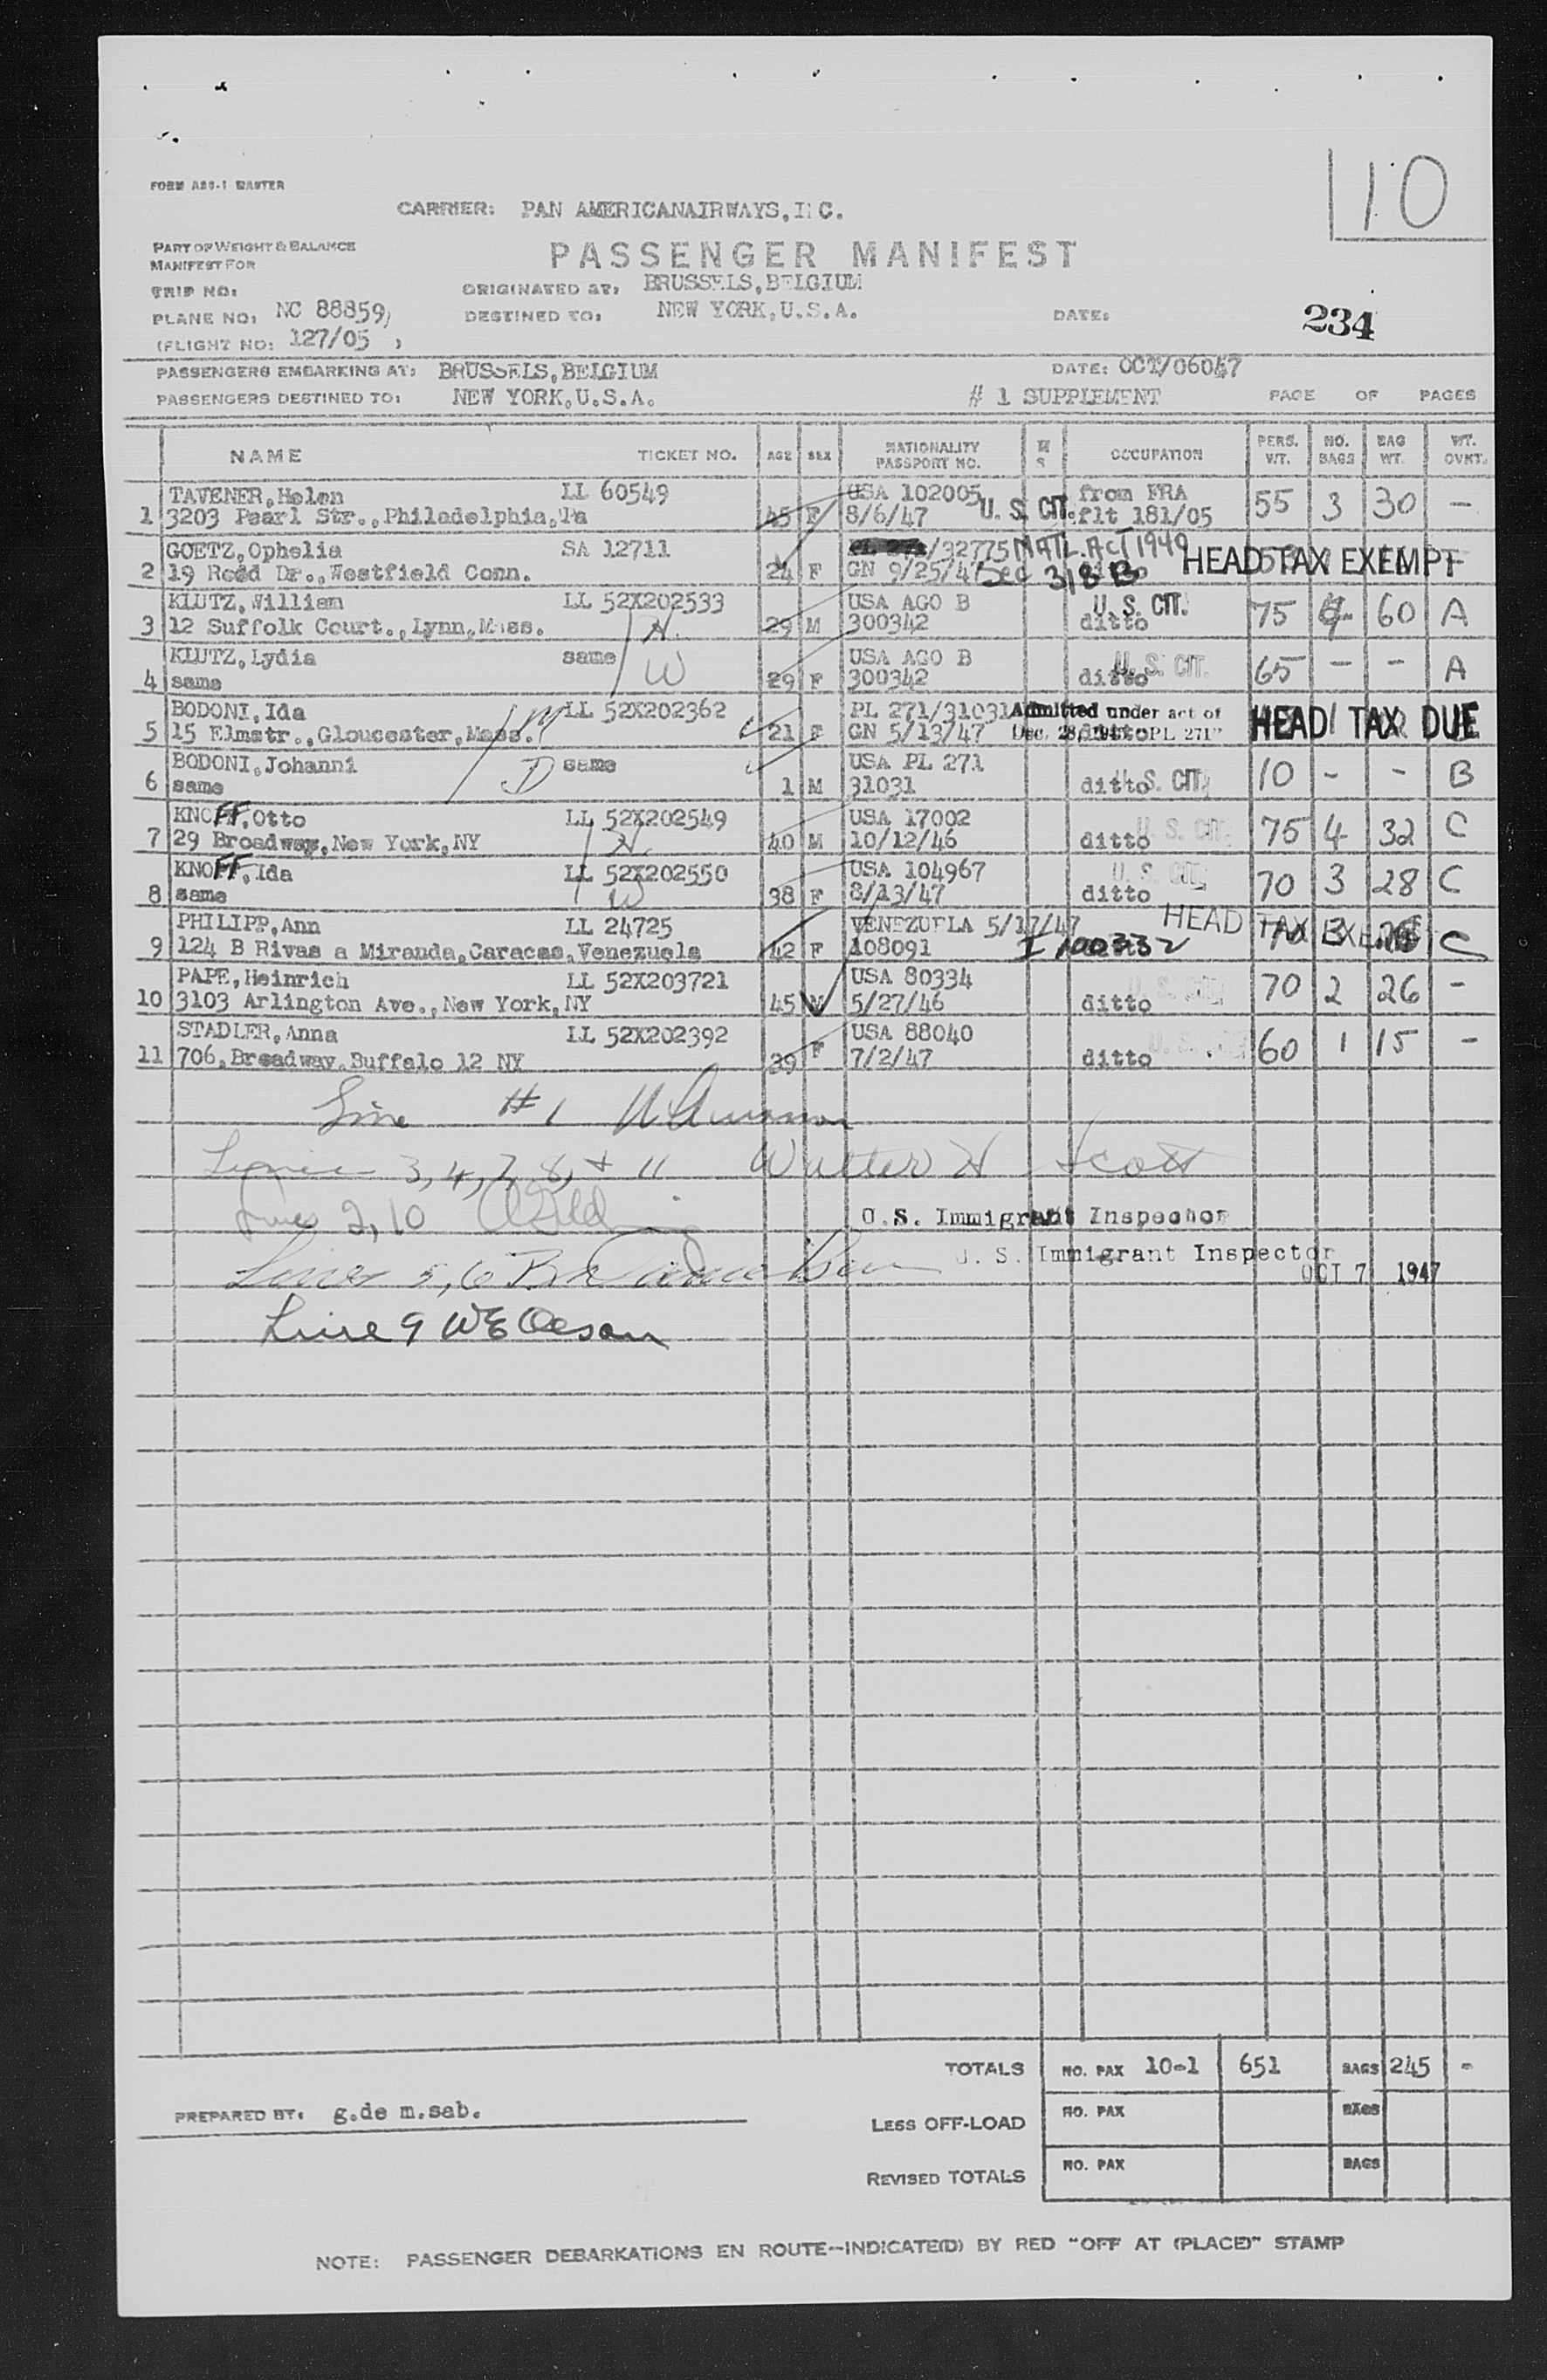 10
FORM A80-1 MASTER
CARRIER: PAN AMERICANAIRWAYS, INC.
PART OF WEIGHT & BALANCE
MANIFEST FOR
PASSENGER MANIFEST
TRIP NO:
ORIGINATED AT: BRUSSELS,BELGIUM
PLANE NO: NC 88859)
DESTINED TO: NEW YORK,U.S.A.
DATE:
234
(FLIGHT NO: 127/05 )
PASSENGERS EMBARKING AT: BRUSSELS,BELGIUM DATE: OCT/06047
PASSENGERS DESTINED TO: NEW YORK,U.S.A. # 1 SUPPLEMENT PAGE OF PAGES
NAME TICKET NO. AGE SEX NATIONALITY PASSPORT NO. M S OCCUPATION PERS. WT. NO. BAGS BAG WT. WT. OVRT.
TAVENER,Helen LL 60549 USA 102005 from FRA
1 3203 Pearl Str.,Philadelphia,Pa 45 F 8/6/47 U. S. CIT. flt 181/05 55 3 30 -
GOETZ,Ophelia SA 12711 /32775 NATL. ACT 1940
2 19 Reed Dr.,Westfield Conn. 24 F GN 9/25/47 Sec 318 B HEAD TAX EXEMPT
KLUTZ,William LL 52X202533 USA AGO B U. S. CIT.
3 12 Suffolk Court.,Lynn,Mass. H. 29 M 300342 ditto 75 4 60 A
KLUTZ,Lydia same USA AGO B U. S. CIT.
4 same W 29 F 300342 ditto 65 - - A
BODONI,Ida LL 52X202362 PL 271/31031 Admitted under act of
5 15 Elmstr.,Gloucester,Mass. M 21 F GN 5/13/47 Dec. 28, 1945 "PL 271" ditto HEAD TAX DUE
BODONI,Johanni same USA PL 271
6 same D 1 M 31031 ditto U. S. CIT. 10 - - B
KNOFF,Otto LL 52X202549 USA 17002 U. S. CIT.
7 29 Broadway,New York,NY H. 40 M 10/12/46 ditto 75 4 32 C
KNOFF,Ida LL 52X202550 USA 104967 U. S. CIT.
8 same W 38 F 8/13/47 ditto 70 3 28 C
PHILIPP,Ann LL 24725 VENEZUELA 5/17/47 HEAD TAX EXEMPT
9 124 B Rivas a Miranda,Caracas,Venezuela 42 F 108091 70 3 C
PAPE,Heinrich LL 52X203721 USA 80334 U. S. CIT.
10 3103 Arlington Ave.,New York,NY 45 M 5/27/46 ditto 70 2 26 -
STADLER,Anna LL 52X202392 USA 88040 U. S. CIT.
11 706,Broadway,Buffalo 12 NY 39 F 7/2/47 ditto 60 1 15 -
Line #1
Lines 3, 4, 7, 8, + 11 Walter H Scott
Lines 2, 10
U.S. Immigrant Inspector
Lines 5, 6
U. S. Immigrant Inspector
OCT 7 1947
Line 9 WE Olesan
TOTALS NO. PAX 10-1 651 BAGS 245 -
PREPARED BY: g.de m.sab.
LESS OFF-LOAD NO. PAX BAGS
REVISED TOTALS NO. PAX BAGS
NOTE: PASSENGER DEBARKATIONS EN ROUTE--INDICATE(D) BY RED "OFF AT (PLACE)" STAMP